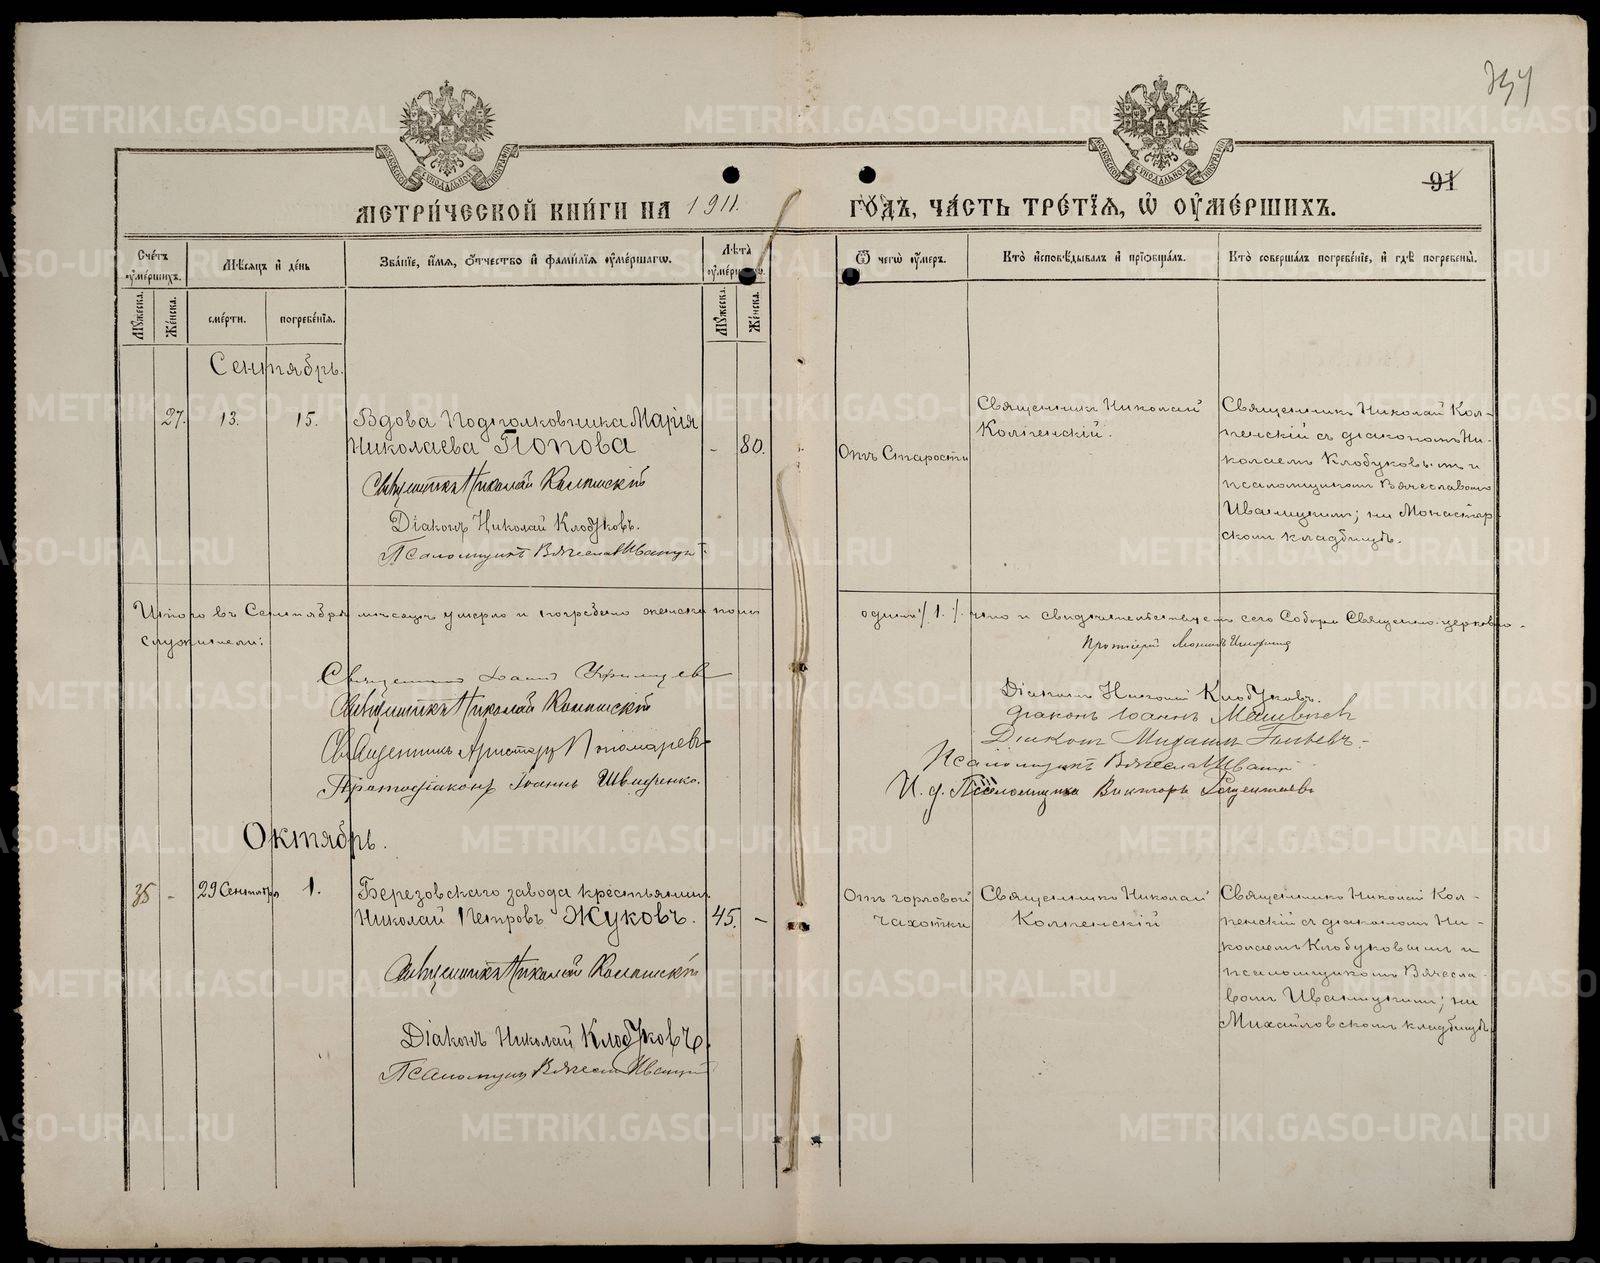 754
91
МЕТРИ́ЧЕСКОЙ КНИ́ГИ НА 1911.
ГО́ДЪ, ЧА́СТЬ ТРЕ́ТІЯ, Ѡ ОУМЕ́РШИХЪ.
Сче́тъ оуме́ршихъ.
Мѣ́сяцъ и де́нь
Зва́ніе, и́мя, о́тчество и фами́лія оуме́ршагѡ.
Лѣта̀ оуме́ршагѡ.
Ѿ чегѡ̀ оу́меръ.
Кто̀ исповѣ́дывалъ и пріѡбща́лъ.
Кто̀ соверша́лъ погребе́ніе, и гдѣ̀ погребены̀.
Му́жеска.
Же́нска.
сме́рти.
погребе́нія.
Му́жеска.
Же́нска.
Сентябрь.
27. 13. 15. Вдова Подполковника Марія
Николаева Попова - 80.
Священникъ Николай Колпенскій
Діаконъ Николай Клобуковъ.
Псаломщикъ Вячеславъ Иваницкій
Отъ Старости
Священникъ Николай
Колпенскій.
Священникъ Николай Кол-
пенскій съ діакономъ Ни-
колаемъ Клобуковымъ и
псаломщикомъ Вячеславомъ
Иваницкимъ; на Монастыр-
скомъ кладбищѣ.
Итого въ Сентябрѣ мѣсяцѣ умерло и погребено женска пола
одинъ /1./ что и свидѣтельствуемъ сего Собора Священно-церковно-
служители:
Протоіерей
Священникъ Іоаннъ
Священникъ Николай Колпенскій
Священникъ Аристархъ Пономаревъ
Протодіаконъ Іоаннъ
Діаконъ Николай Клобуковъ.
Діаконъ Іоаннъ
Діаконъ Михаилъ
Псаломщикъ Вячеславъ Иваницкій
И. д. Псаломщика Викторъ
Октябрь.
35 - 29 Сентября 1. Березовскаго завода крестьянинъ
Николай Петровъ Жуковъ. 45. -
Священникъ Николай Колпенскій
Діаконъ Николай Клобуковъ.
Псаломщикъ Вячеславъ Иваницкій
Отъ горловой
чахотки
Священникъ Николай
Колпенскій
Священникъ Николай Кол-
пенскій съ діакономъ Ни-
колаемъ Клобуковымъ и
псаломщикомъ Вячесла-
вомъ Иваницкимъ; на
Михайловскомъ кладбищѣ.
METRIKI.GASO-URAL.RU